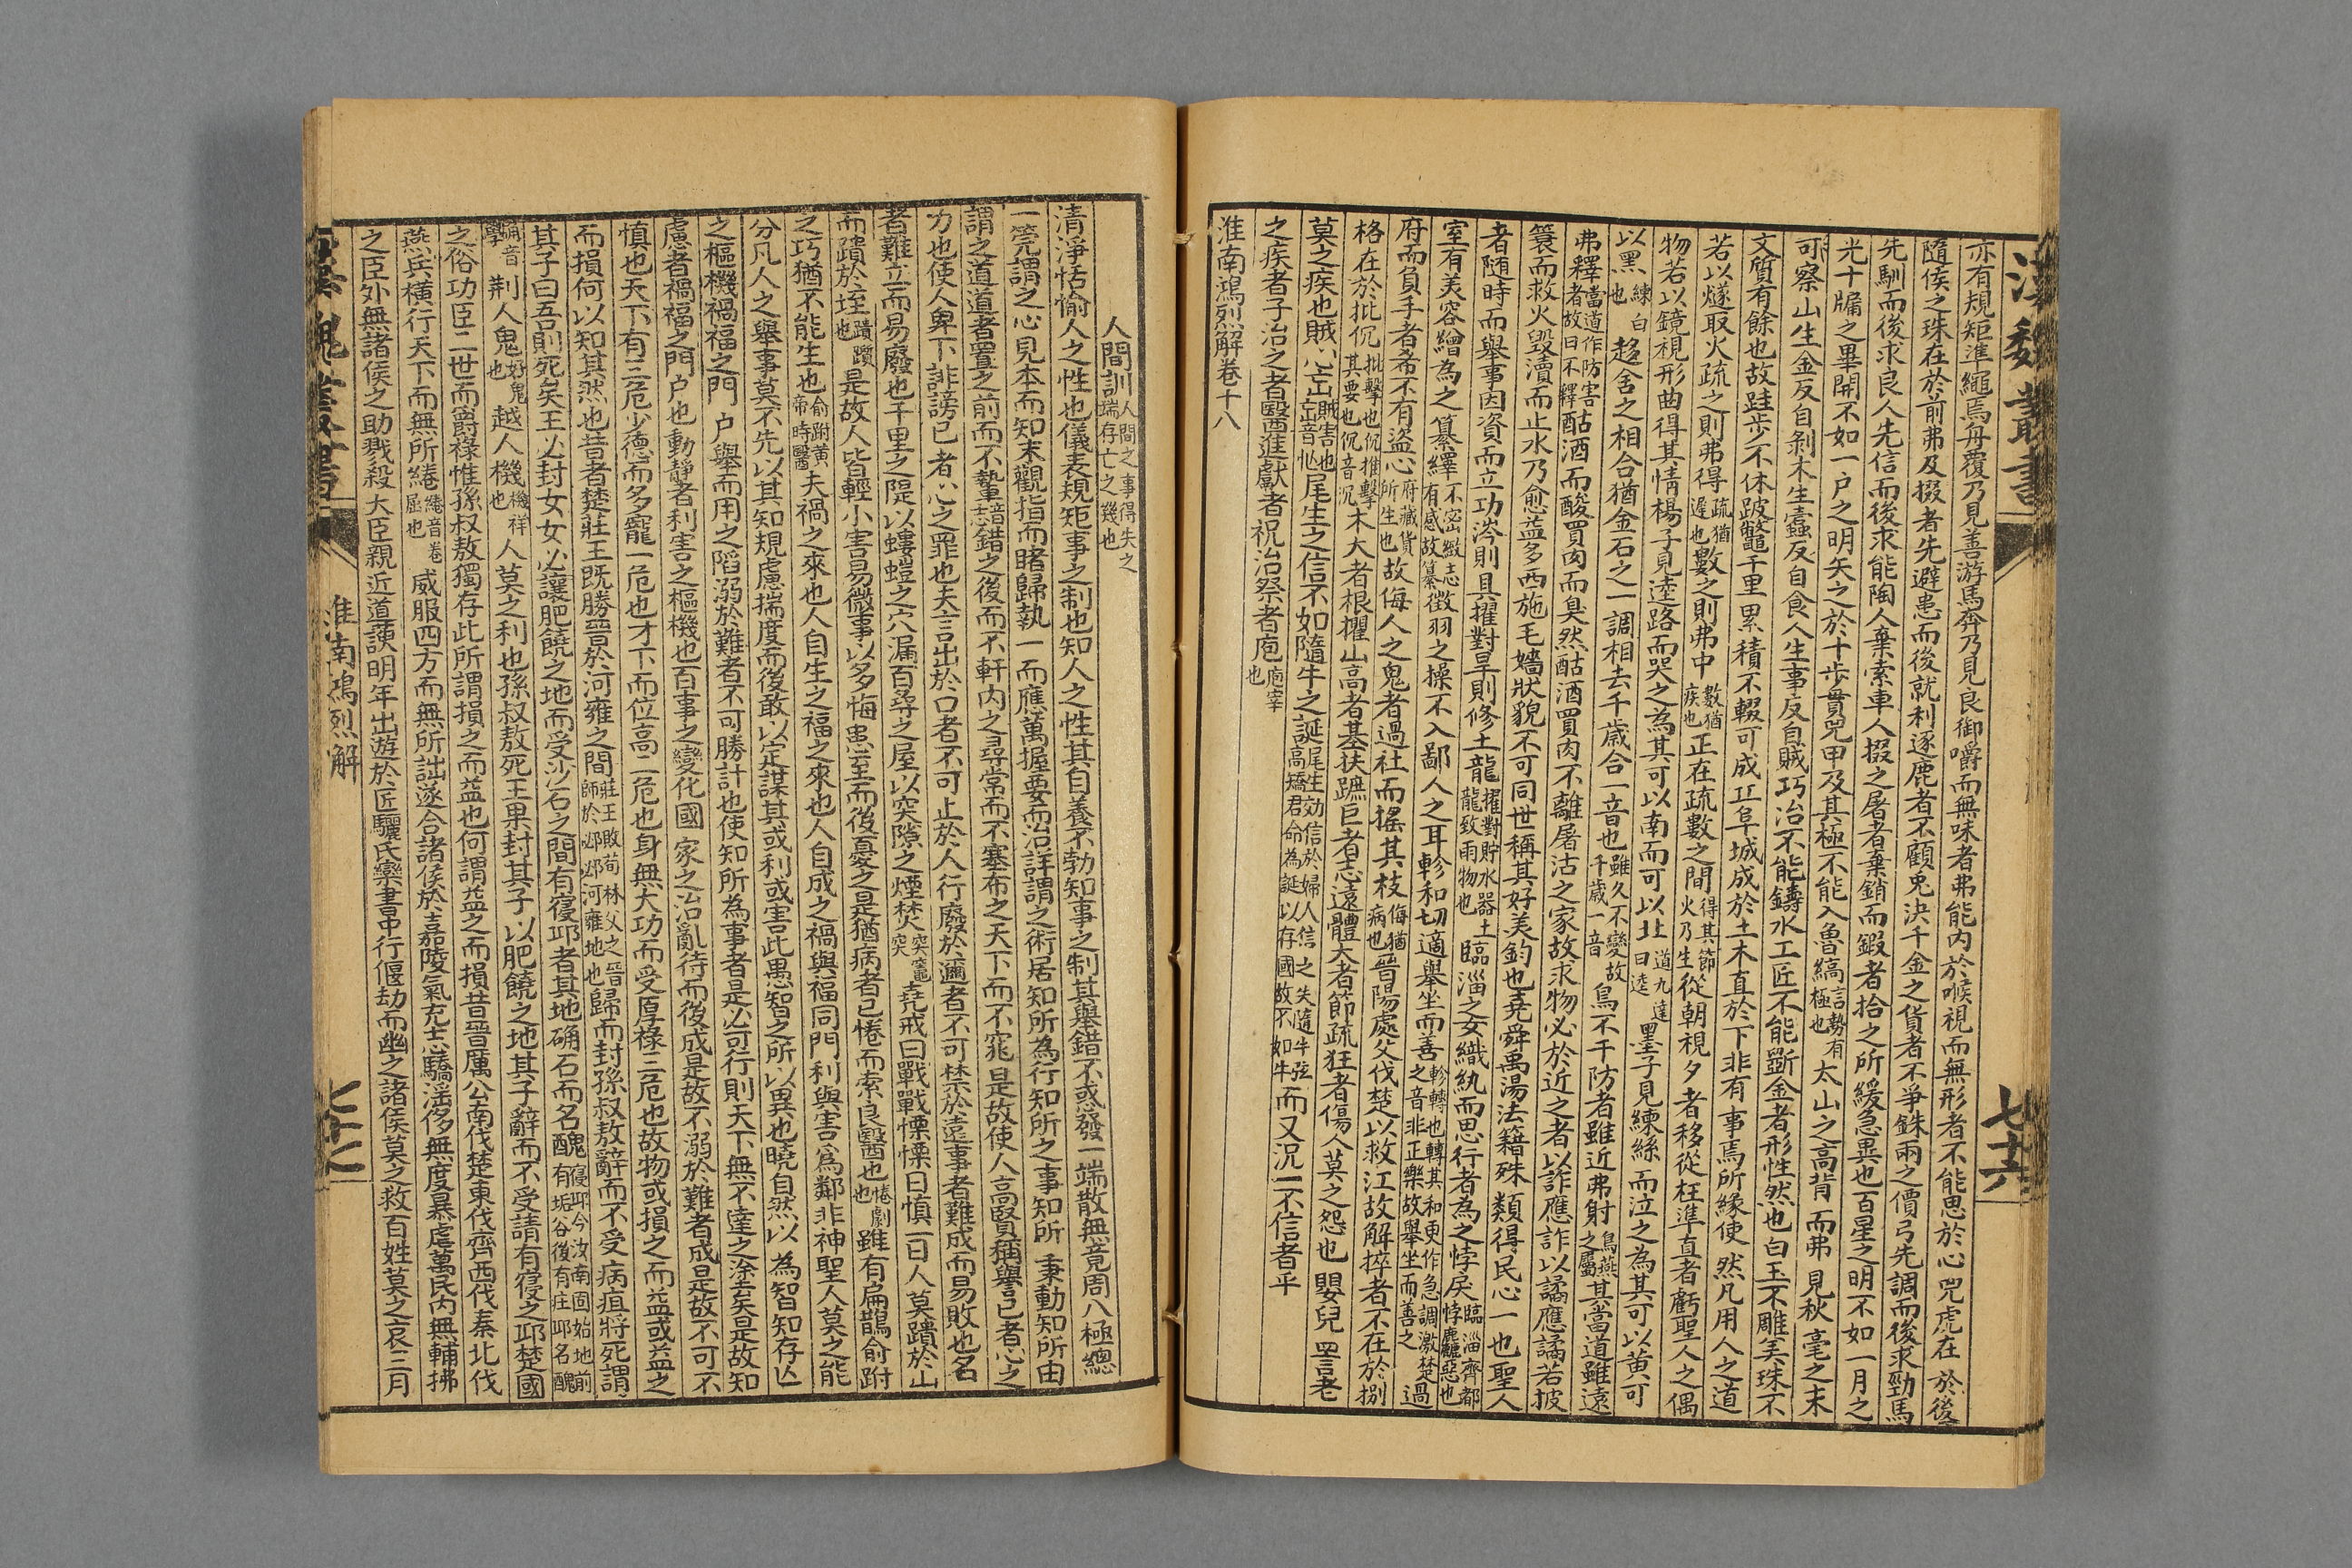 漢魏叢書
七十六
亦有規矩準繩焉舟覆乃見善游馬奔乃見良御嚼而無味者弗能內於喉視而無形者不能思於心兕虎在於後
隨侯之珠在於前弗及掇者先避患而後就利逐鹿者不顧兎決千金之貨者不爭銖兩之價弓先調而後求勁馬
先馴而後求良人先信而後求能陶人棄索車人掇之屠者棄銷而鍛者拾之所緩急異也百星之明不如一月之
光十牖之畢開不如一户之明矢之於十步貫兕甲及其極不能入魯縞言勢有極也太山之高背而弗見秋毫之末
可察山生金反自剝木生蠹反自食人生事反自賊巧冶不能鑄木工匠不能斵金者形性然也白玉不雕美珠不
文質有餘也故跬步不休跛鼈千里累積不輟可成丘阜城成於土木直於下非有事焉所緣使然凡用人之道
若以燧取火疏之則弗得疏猶遲也數之則弗中數猶疾也正在疏數之間得其節火乃生從朝視夕者移從枉準直者虧聖人之偶
物若以鏡視形曲得其情楊子見逵路而哭之為其可以南而可以北道九達曰逵墨子見練絲而泣之為其可以黃可
以黑練白也趍舍之相合猶金石之一調相去千歲合一音也雖久不變故千歲一音鳥不干防者雖近弗射鳥燕之屬其當道雖遠
弗釋當道作防害者故曰不釋酤酒而酸買肉而臭然酤酒買肉不離屠沽之家故求物必於近之者以詐應詐以譎應譎若披
簑而救火毀瀆而止水乃愈益多西施毛嬙狀貌不可同世稱其好美鈞也堯舜禹湯法籍殊類得民心一也聖人
者隨時而舉事因資而立功涔則具擢對旱則修土龍擢對貯水器土龍致雨物也臨淄之女織紈而思行者為之悖戾臨淄齊都悖麤惡也
室有美容繒為之纂繹不密緻志有感故纂徵羽之操不入鄙人之耳軫和切適舉坐而善軫轉也轉其和更作急調激楚之音非正樂故舉坐而善之過
府而負手者希不有盜心府藏貨所生也故侮人之鬼者過社而搖其枝侮猶病也晉陽處父伐楚以救江故解捽者不在於捌
格在於批伔批擊也伔推擊其要也伔音沉木大者根擢山高者基扶蹠巨者志遠體大者節疏狂者傷人莫之怨也嬰兒詈老
莫之疾也賊心𡵆賊害也𡵆音忙尾生之信不如隨牛之誕尾生効信於婦人信之失隨牛弦高矯君命為誕以存國故不如牛而又況一不信者乎
之疾者子治之者醫進獻者祝治祭者庖庖宰也
淮南鴻烈解卷十八
人間訓人間之事得失之端存亡之幾也
清淨恬愉人之性也儀表規矩事之制也知人之性其自養不勃知事之制其舉錯不惑發一端散無竟周八極總
一筦謂之心見本而知末觀指而睹歸執一而應萬握要而治詳謂之術居知所為行知所之事知所秉動知所由
謂之道道者置之前而不摯音志錯之後而不軒內之尋常而不塞布之天下而不窕是故使人高賢稱譽己者心之
力也使人卑下誹謗已者心之罪也夫言出於口者不可止於人行廢於邇者不可禁於遠事者難成而易敗也名
者難立而易廢也千里之隄以螻螘之穴漏百尋之屋以突隙之煙焚突竈突堯戒曰戰戰慄慄日慎一日人莫蹪於山
而蹪於垤蹪躓也是故人皆輕小害易微事以多悔患至而後憂之是猶病者已惓而索良醫也惓劇也雖有扁鵲俞跗
之巧猶不能生也俞跗黃帝時醫夫禍之來也人自生之福之來也人自成之禍與福同門利與害為鄰非神聖人莫之能
分凡人之舉事莫不先以其知規慮揣度而後敢以定謀其或利或害此愚智之所以異也曉自然以為智知存亡
之樞機禍福之門户舉而用之陷溺於難者不可勝計也使知所為事者是必可行則天下無不達之塗矣是故知
慮者禍福之門户也動靜者利害之樞機也百事之變化國家之治亂待而後成是故不溺於難者成是故不可不
慎也天下有三危少德而多寵一危也才下而位高二危也身無大功而受厚祿三危也故物或損之而益或益之
而損何以知其然也昔者楚莊王既勝晉於河雍之間莊王敗荀林父之晉師於邲邲河雍地也歸而封孫叔敖辭而不受病疽將死謂
其子曰吾則死矣王必封女女必讓肥饒之地而受沙石之間有寢邱者其地确石而名醜寢邱今汝南固始地前有垢谷後有庄邱名醜
确音學荆人鬼好鬼也越人禨禨祥也人莫之利也孫叔敖死王果封其子以肥饒之地其子辭而不受請有寢之邱楚國
之俗功臣二世而爵祿惟孫叔敖獨存此所謂損之而益也何謂益之而損昔晉厲公南伐楚東伐齊西伐秦北伐
燕兵橫行天下而無所綣綣音卷屈也威服四方而無所詘遂合諸侯於嘉陵氣充志驕淫侈無度暴虐萬民內無輔拂
之臣外無諸侯之助戮殺大臣親近道諛明年出遊於匠驪氏欒書中行偃劫而幽之諸侯莫之救百姓莫之哀三月
漢魏叢書
淮南鴻烈解
七十七